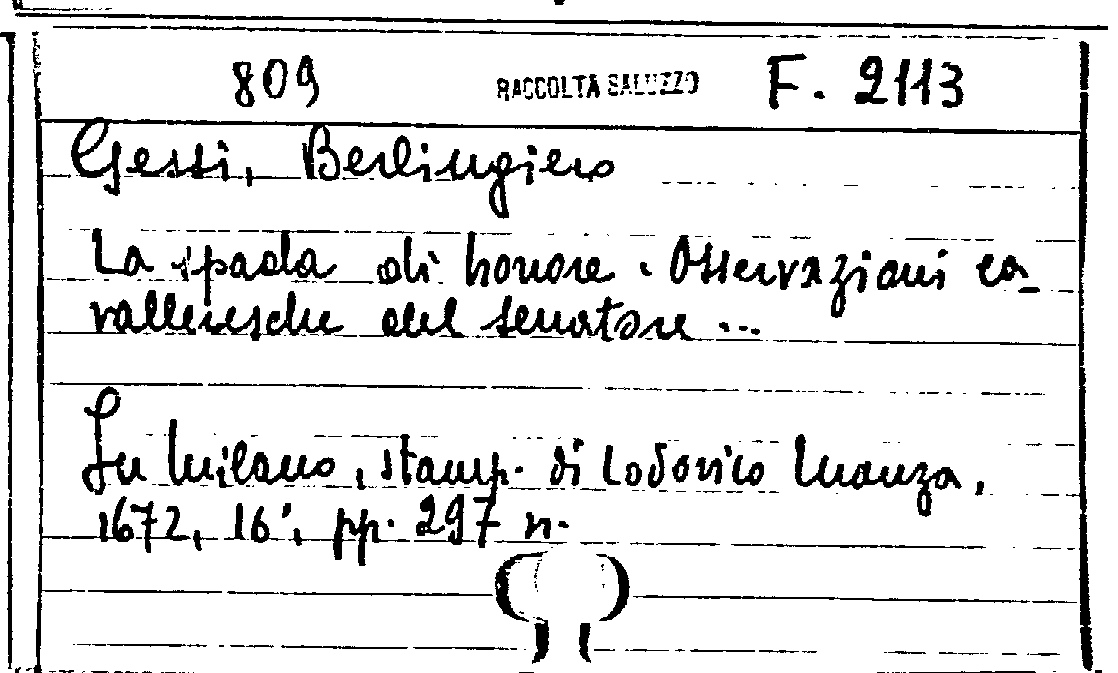 809 RACCOLTA SALUZZO F. 2113
Gessi, Berlingiero
La spada di honore. Osservazioni ca-
valleresche del senatore ...
In Milano, stamp. di Lodovico Monza,
1672, 16°, pp. 297 n.